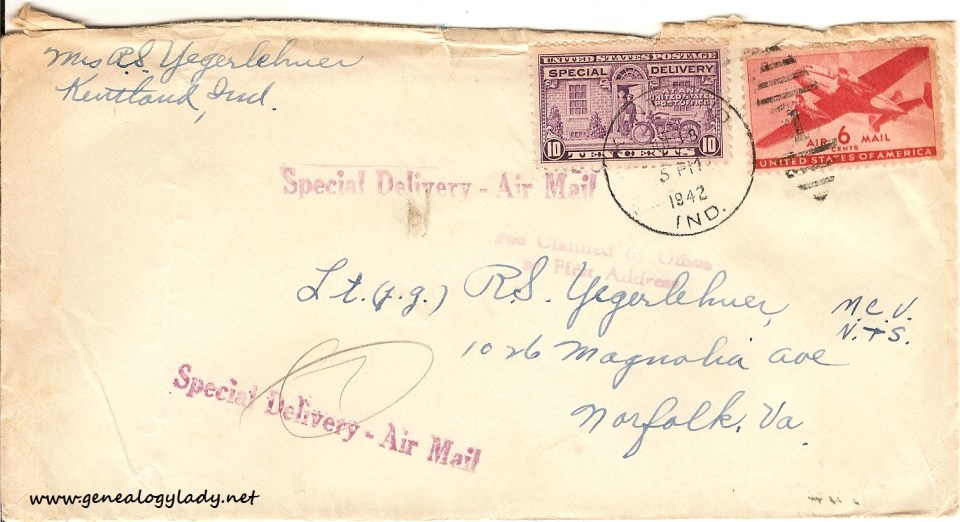 Mrs R.S. Yegerlehner
Kentland, Ind.
UNITED STATES POSTAGE
SPECIAL DELIVERY
AT ANY
UNITED STATES
POST OFFICE
10 TEN CENTS 10
AIR 6 MAIL
CENTS
UNITED STATES OF AMERICA
5 PM
1942
IND.
Special Delivery - Air Mail
Fee Claimed by Office
at First Address
Lt. (j.g.) R.S. Yegerlehner,
M.C.V.
N.T.S.
1026 Magnolia Ave
Norfolk, Va.
Special Delivery - Air Mail
www.genealogylady.net